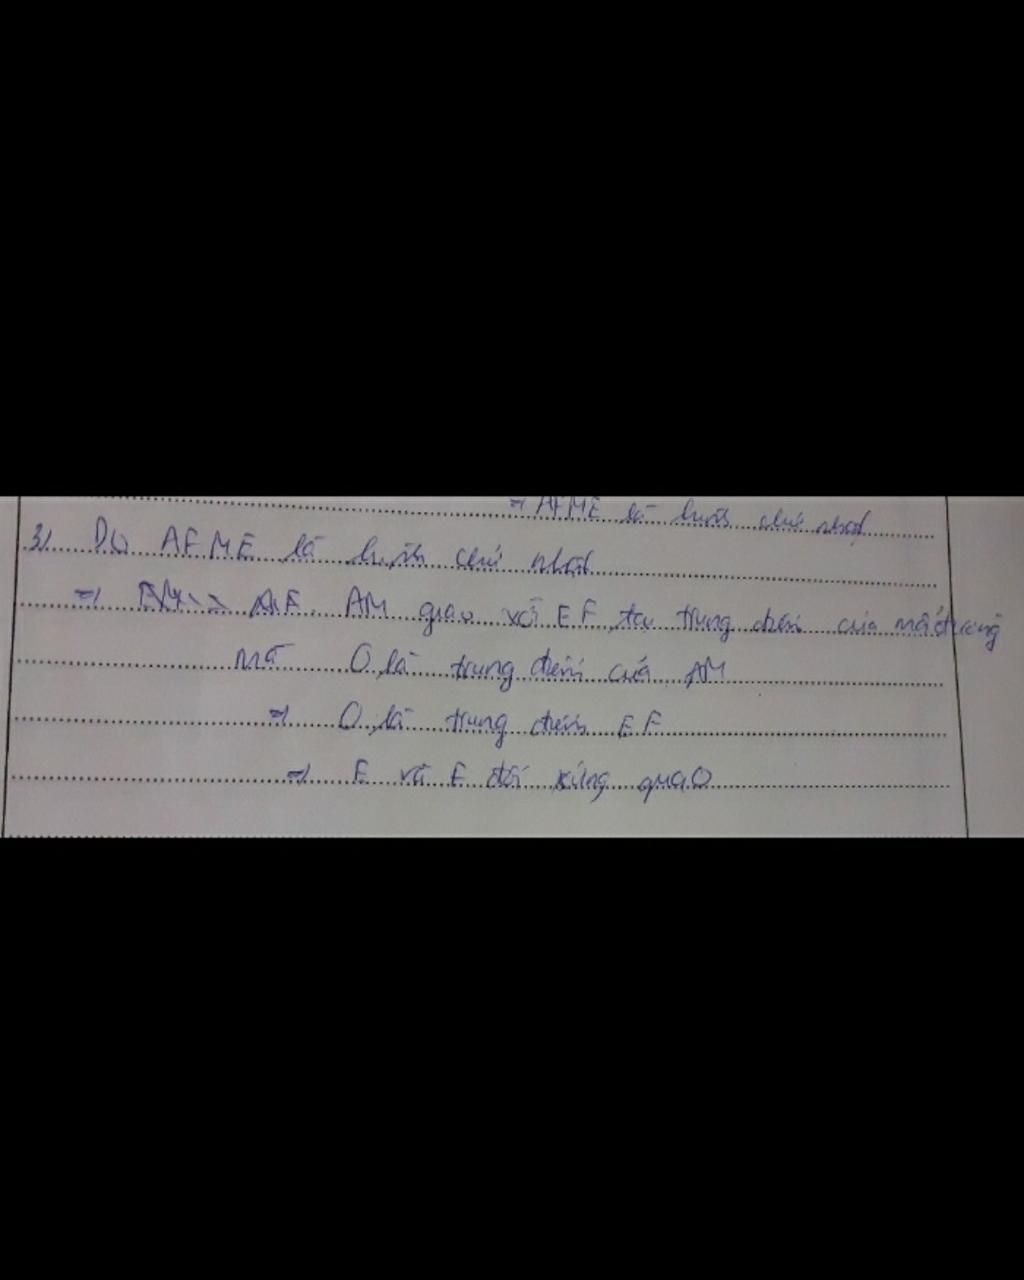 => AFME là hình chữ nhật
3) Do AFME là hình chữ nhật
=> AM giao với EF tại trung điểm của mỗi đường
mà O là trung điểm của AM
=> O là trung điểm EF
=> E và F đối xứng qua O